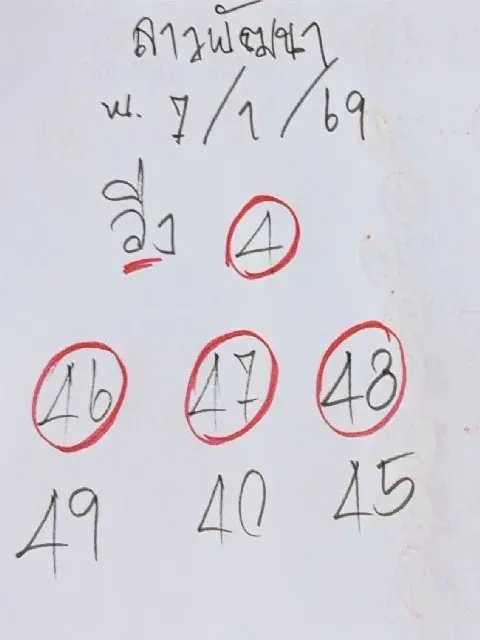 ลาวพัฒนา
พ. 7/1/69
วิ่ง 4
46 47 48
49 40 45